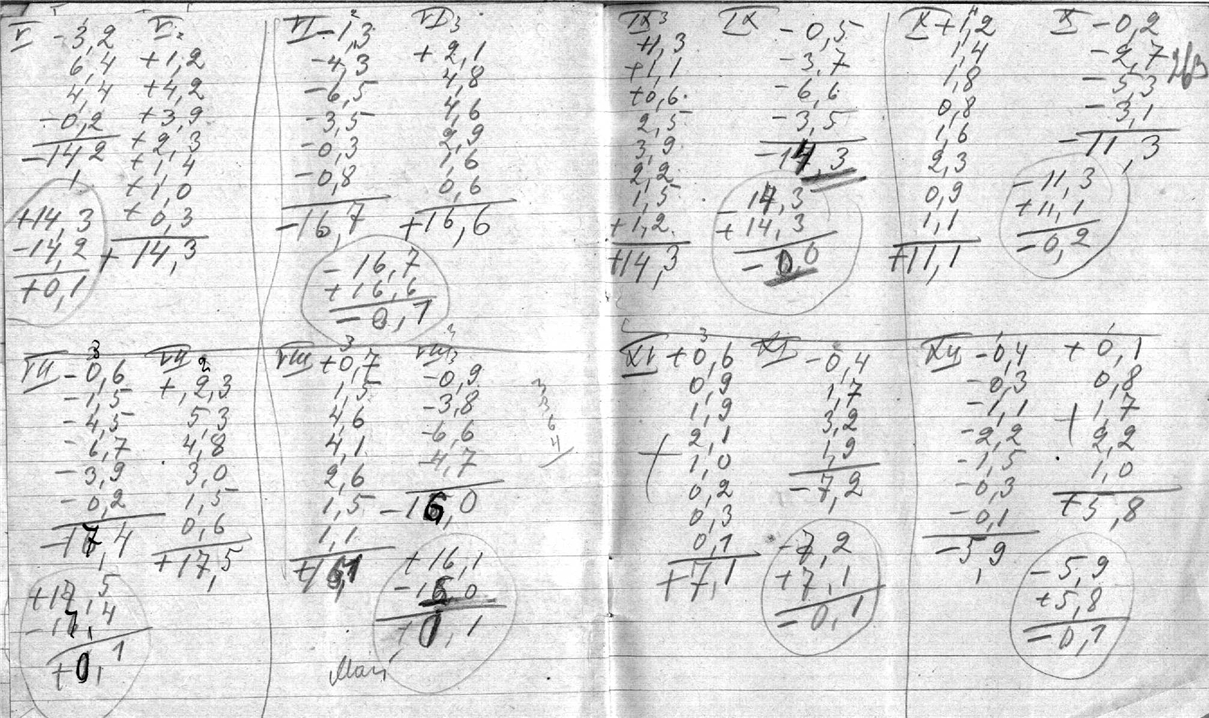 V -3,2
6,4
4,4
-0,2
-14,2
+14,3
-14,2
+0,1
V
+1,2
+4,2
+3,9
+2,3
+1,4
+1,0
+0,3
+14,3
VI -1,3
-4,3
-6,5
-3,5
-0,3
-0,8
-16,7
VI
+2,1
4,8
4,6
2,9
1,6
0,6
+16,6
-16,7
+16,6
-0,1
IX
+1,3
+1,1
+0,6
2,5
3,9
2,2
1,5
+1,2
+14,3
IX -0,5
-3,7
-6,6
-3,5
-14,3
-14,3
+14,3
-0,0
X +1,2
1,4
1,8
0,8
1,6
2,3
0,9
1,1
+11,1
X -0,2
-2,7
-5,3
-3,1
-11,3
-11,3
+11,1
-0,2
263
VII 3
-0,6
-1,5
-4,5
-6,7
-3,9
-0,2
-17,4
+17,5
-17,4
+0,1
VII 2
+2,3
5,3
4,8
3,0
1,5
0,6
+17,5
VIII 3
+0,7
1,5
4,6
4,1
2,6
1,5
1,1
+16,1
VIII
-0,9
-3,8
-6,6
-4,7
-16,0
+16,1
-16,0
+0,1
Май
XI 3
+0,6
0,9
1,9
2,1
+ 1,0
0,2
0,3
0,1
+7,1
XI -0,4
1,7
3,2
1,9
-7,2
-7,2
+7,1
-0,1
XII -0,4
-0,3
-1,1
-2,2
-1,5
-0,3
-0,1
-5,9
+0,1
0,8
+ 1,7
2,2
1,0
+5,8
-5,9
+5,8
-0,1